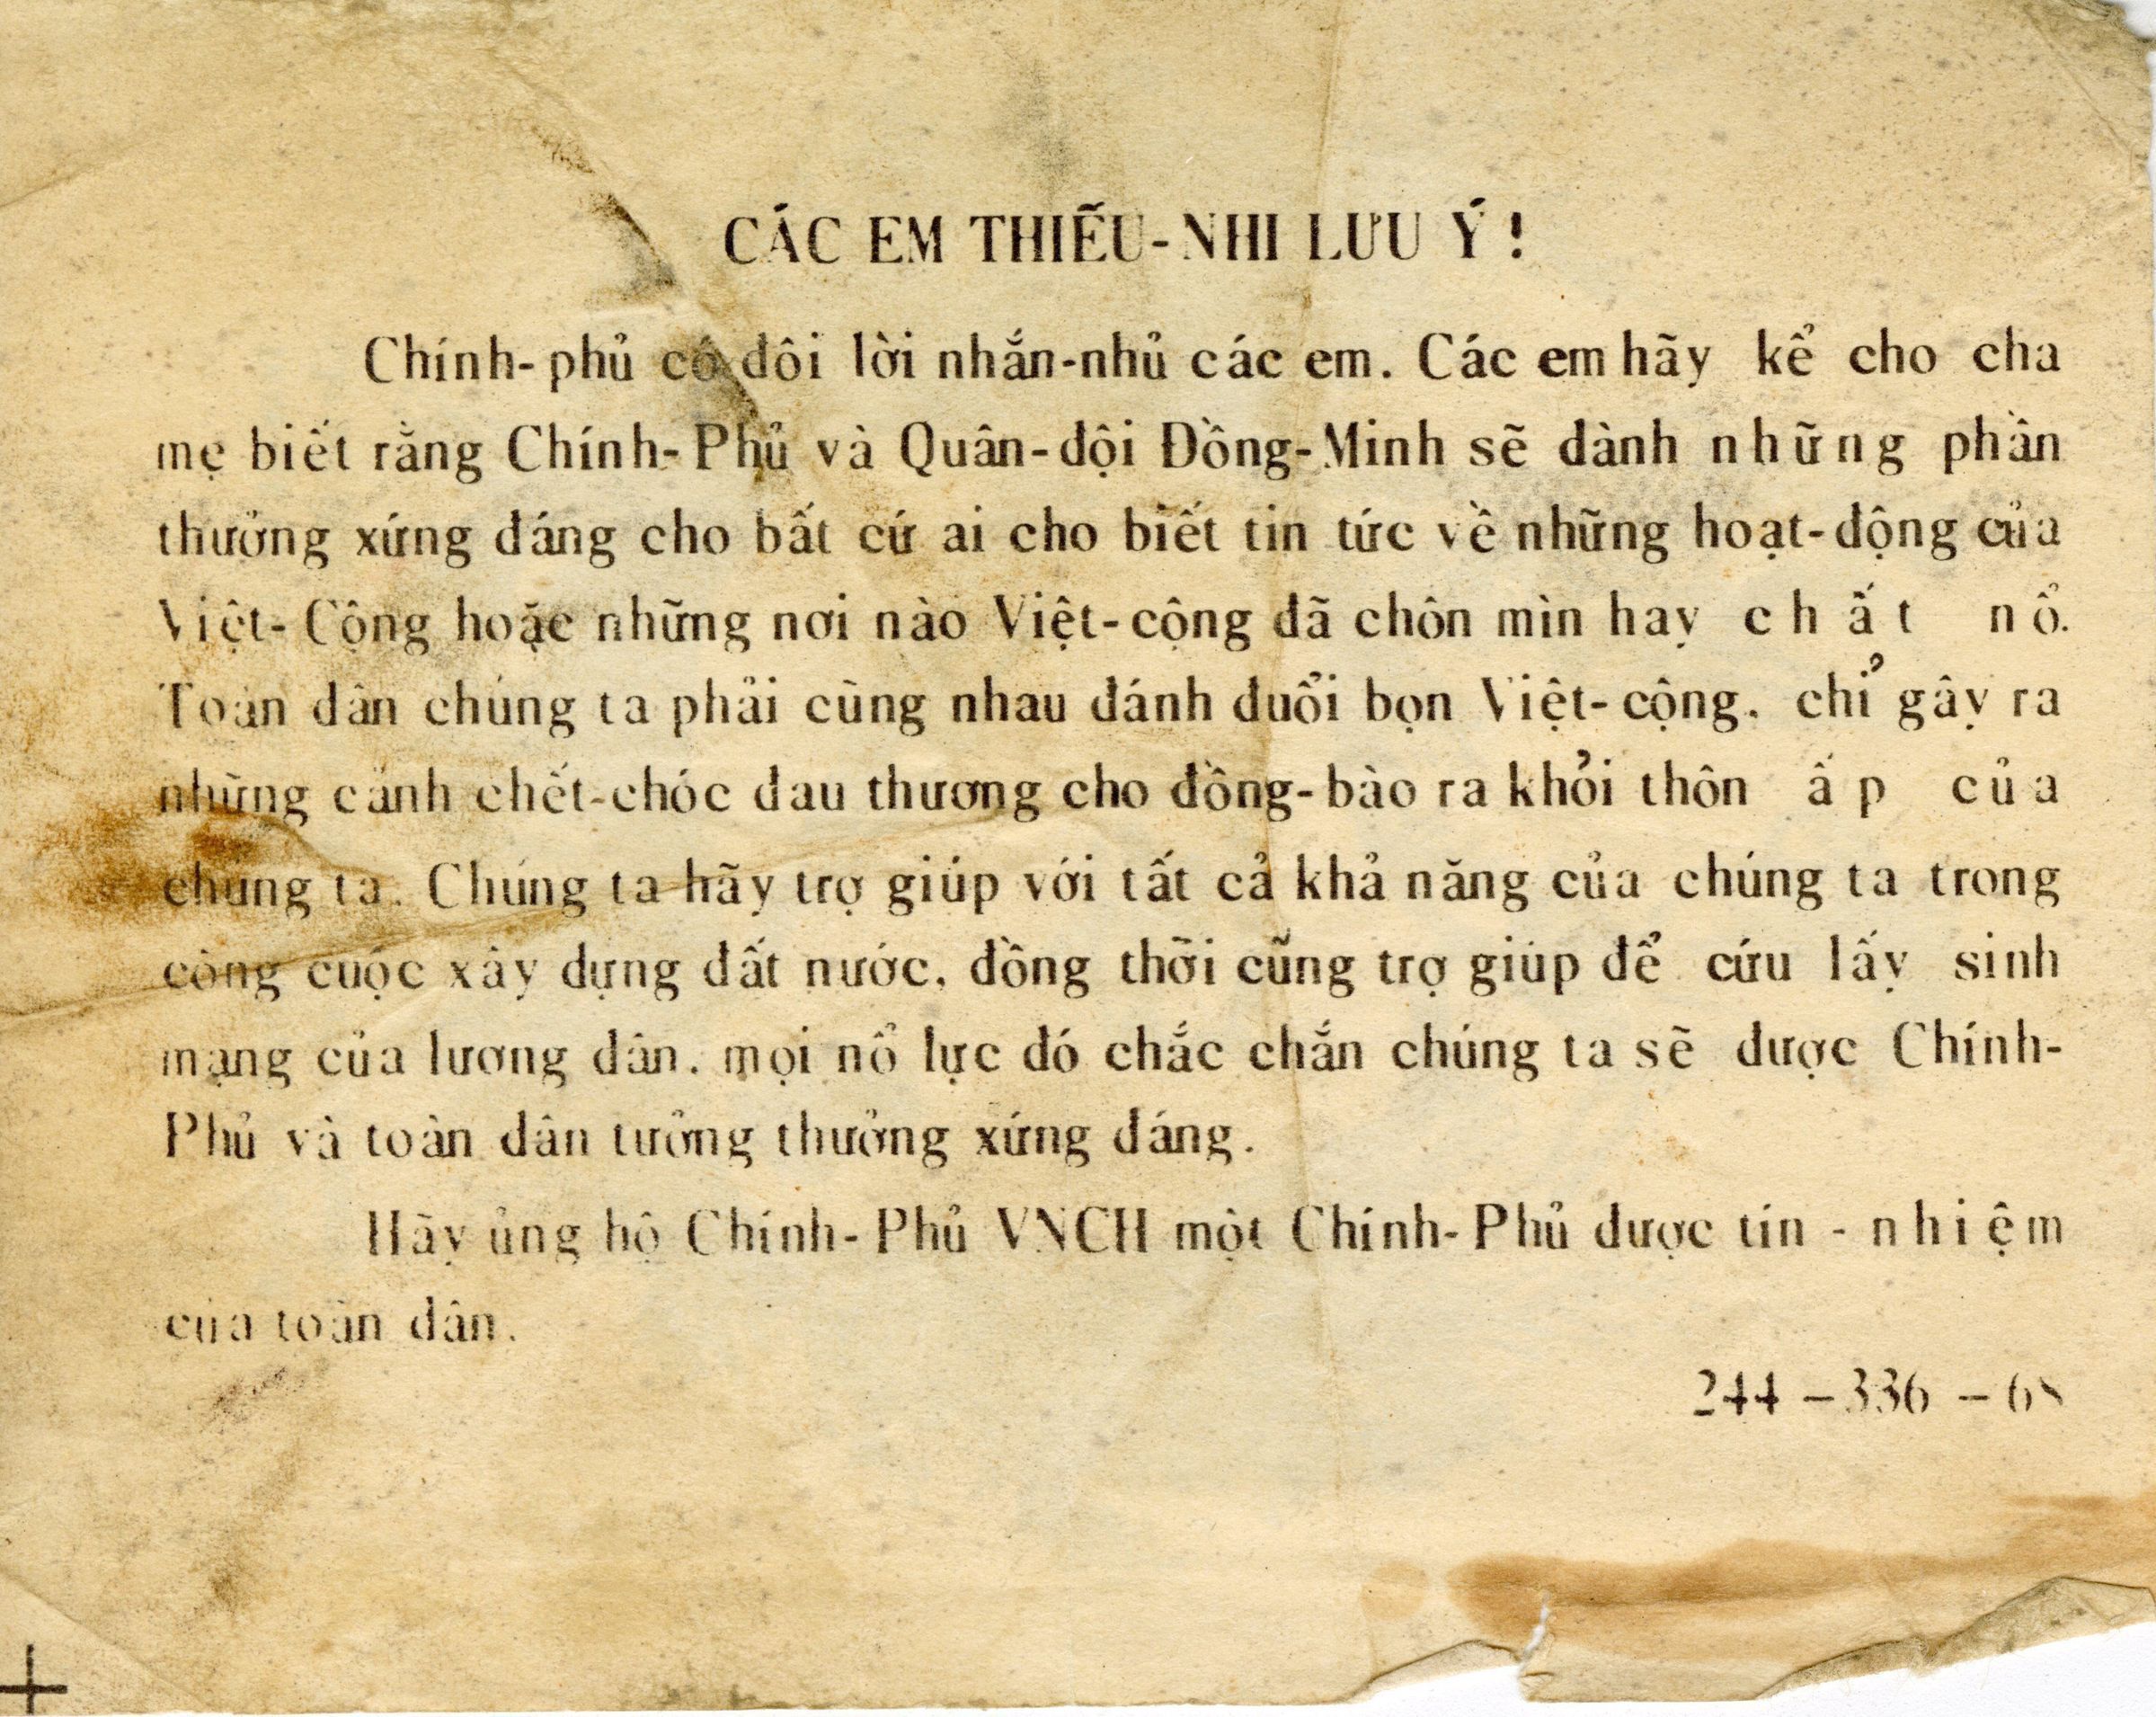 CÁC EM THIẾU-NHI LƯU Ý !
Chính-phủ có đôi lời nhắn-nhủ các em. Các em hãy kể cho cha
mẹ biết rằng Chính-Phủ và Quân-đội Đồng-Minh sẽ dành những phần
thưởng xứng đáng cho bất cứ ai cho biết tin tức về những hoạt-động của
Việt-Cộng hoặc những nơi nào Việt-cộng đã chôn mìn hay chất nổ.
Toàn dân chúng ta phải cùng nhau đánh đuổi bọn Việt-cộng, chỉ gây ra
những cảnh chết-chóc đau thương cho đồng-bào ra khỏi thôn ấp của
chúng ta. Chúng ta hãy trợ giúp với tất cả khả năng của chúng ta trong
công cuộc xây dựng đất nước, đồng thời cũng trợ giúp để cứu lấy sinh
mạng của lương dân. mọi nổ lực đó chắc chắn chúng ta sẽ được Chính-
Phủ và toàn dân tưởng thưởng xứng đáng.
Hãy ủng hộ Chính-Phủ VNCH một Chính-Phủ được tín - nhiệm
của toàn dân.
244 – 336 – 68